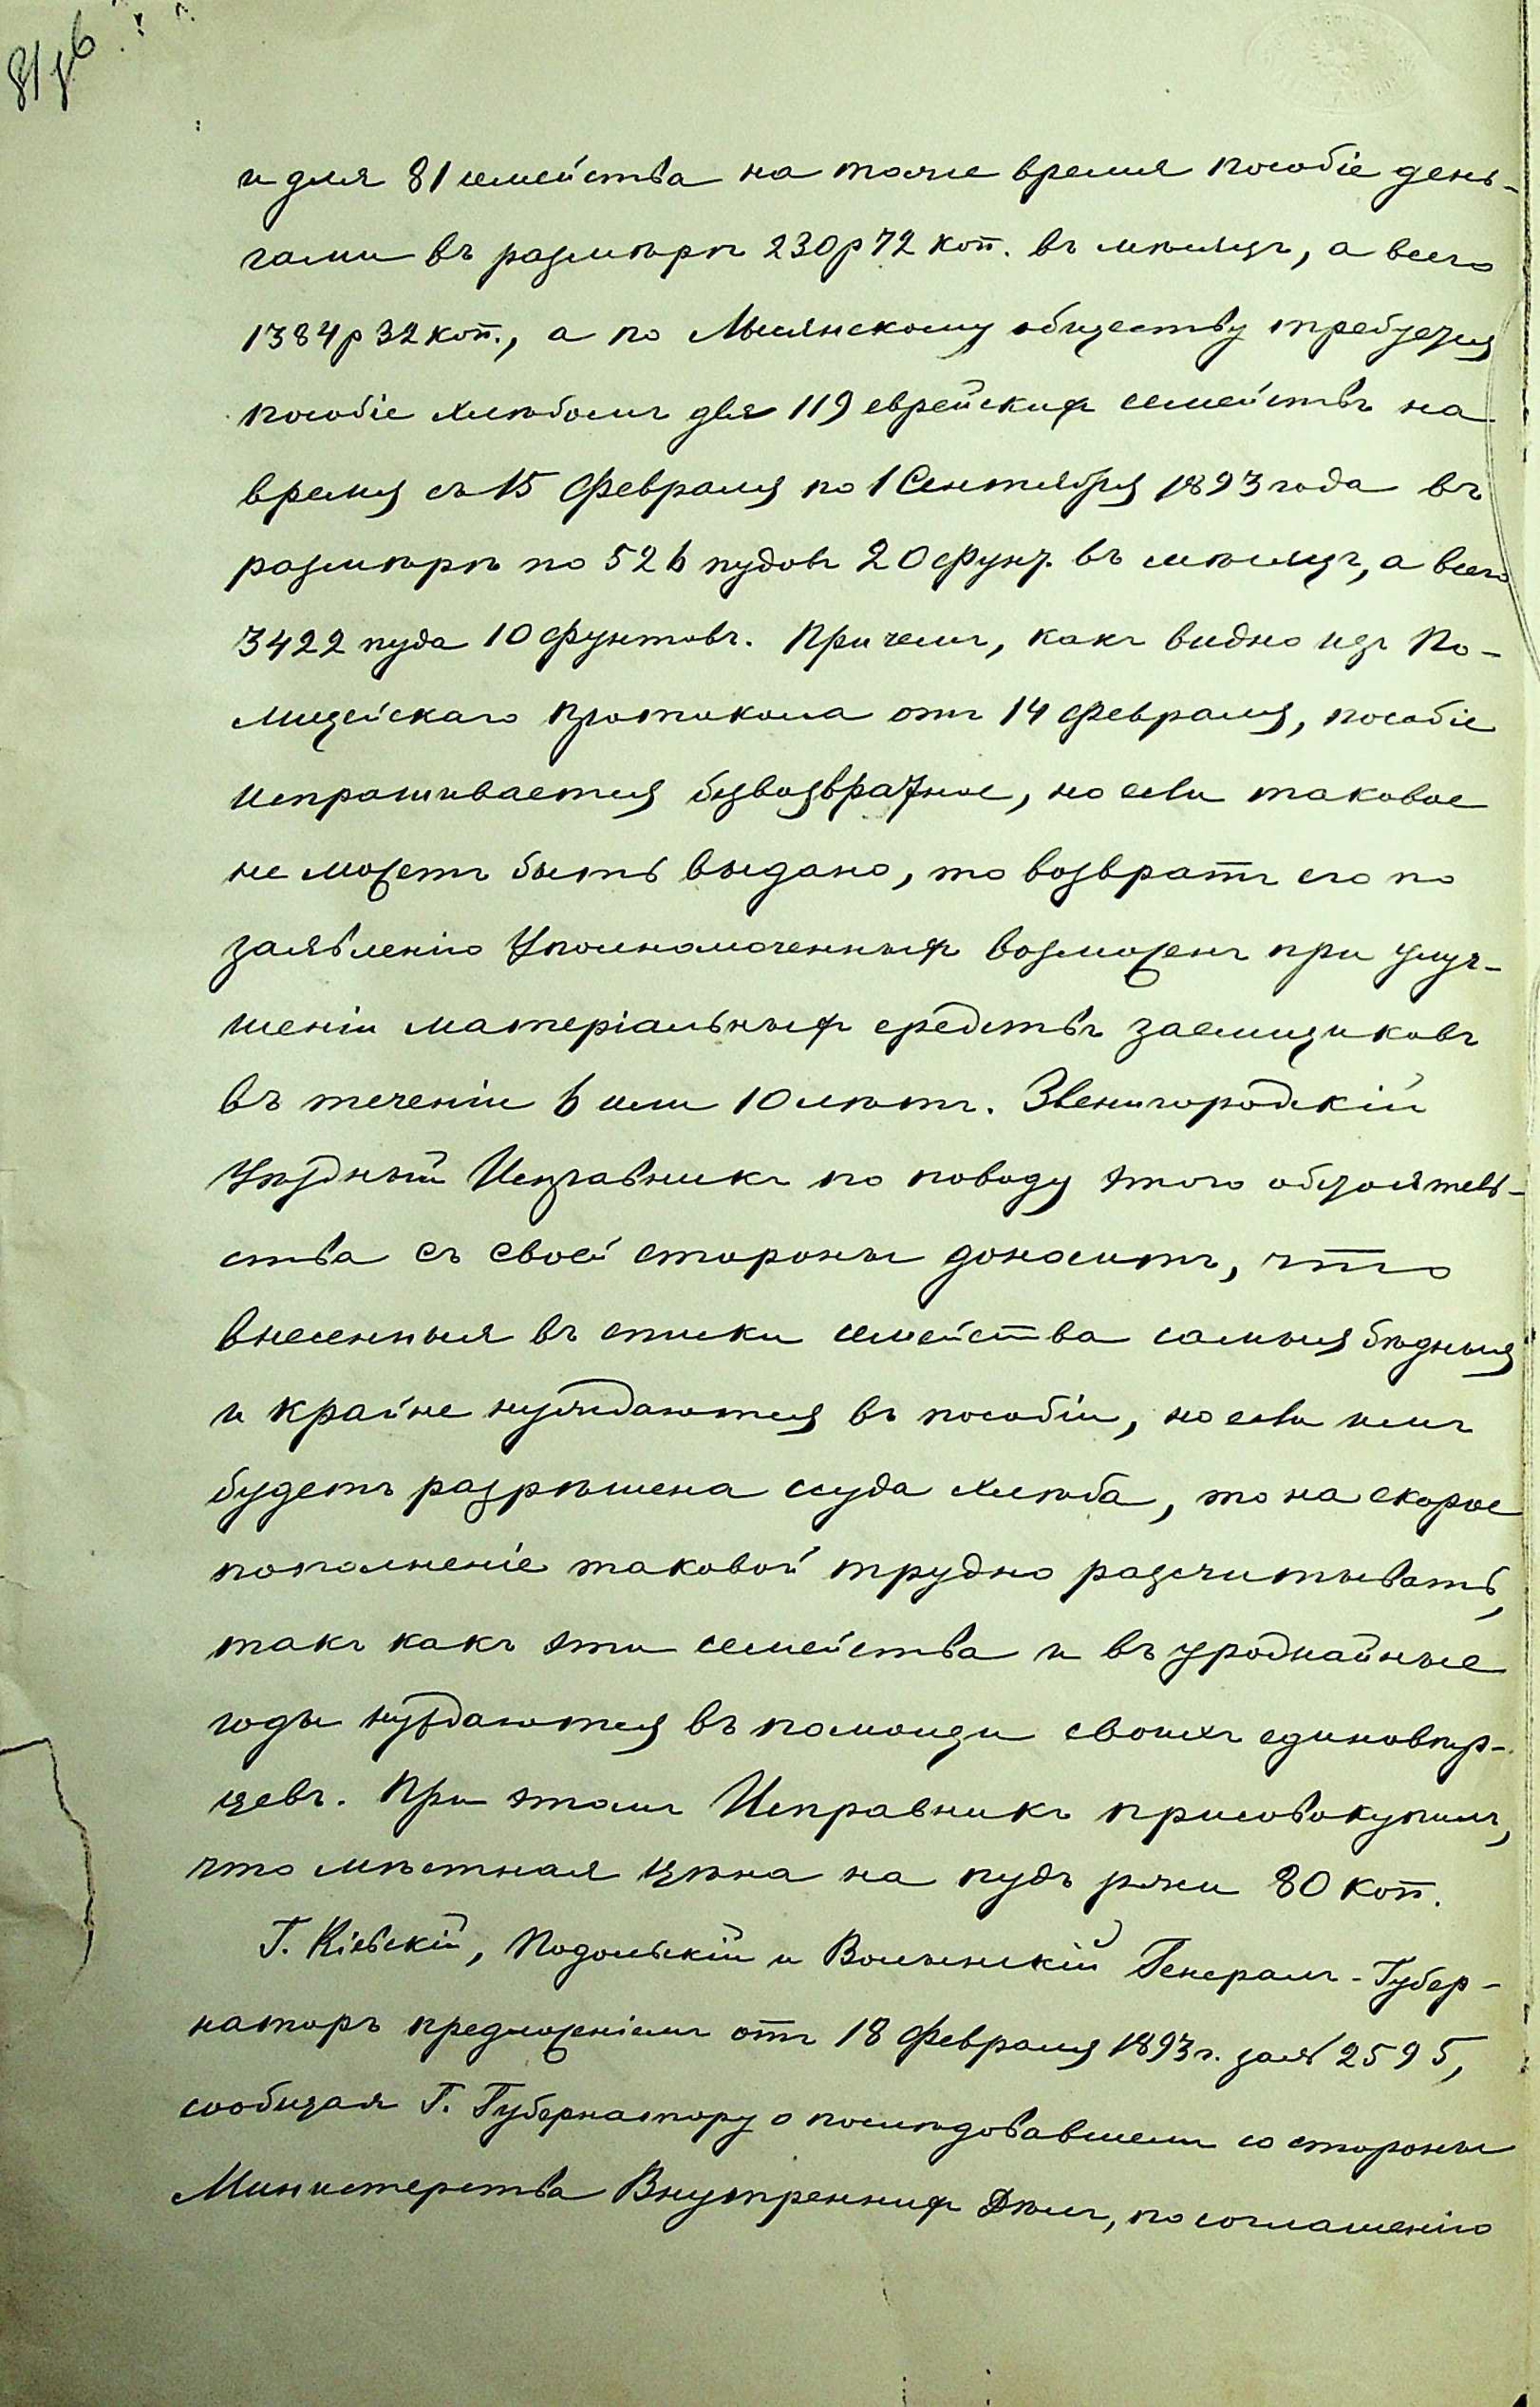 и для 81 семейства на тоже время пособіе день-
гами въ размѣрѣ 230р 72 коп. въ мѣсяцъ, а всего
1384р 32 коп., а по Лысянскому обществу требуется
пособіе хлѣбомъ для 119 еврейскихъ семействъ на
время съ 15 Февраля по 1 Сентября 1893 года въ
размѣрѣ по 526 пудовъ 20 фунт. въ мѣсяцъ, а всего
3422 пуда 10 фунтовъ. Причемъ, какъ видно изъ По-
лицейскаго протокола отъ 14 Февраля, пособіе
испрашивается безвозвратное, но если таковое
не можетъ быть выдано, то возвратъ его по
заявленію Уполномоченныхъ возможенъ при улуч-
шеніи матеріальныхъ средствъ заемщиковъ
въ теченіи 6 или 10 лѣтъ. Звенигородскій
Уѣздный Исправникъ по поводу этого обстоятель-
ства съ своей стороны доноситъ, что
внесенныя въ списки семейства самыя бѣдныя
и крайне нуждаются въ пособіи, но если имъ
будетъ разрѣшена ссуда хлѣба, то на скорое
пополненіе таковой трудно разсчитывать,
такъ какъ эти семейства и въ урожайные
годы нуждаются въ помощи своихъ единовѣр-
цевъ. При этомъ Исправникъ присовокупилъ,
что мѣстная цѣна на пудъ ржи 80 коп.
Г. Кіевскій, Подольскій и Волынскій Генералъ-Губер-
наторъ предложеніемъ отъ 18 Февраля 1893 г. за № 2595,
сообщая Г. Губернатору о послѣдовавшемъ со стороны
Министерства Внутреннихъ Дѣлъ, по соглашенію